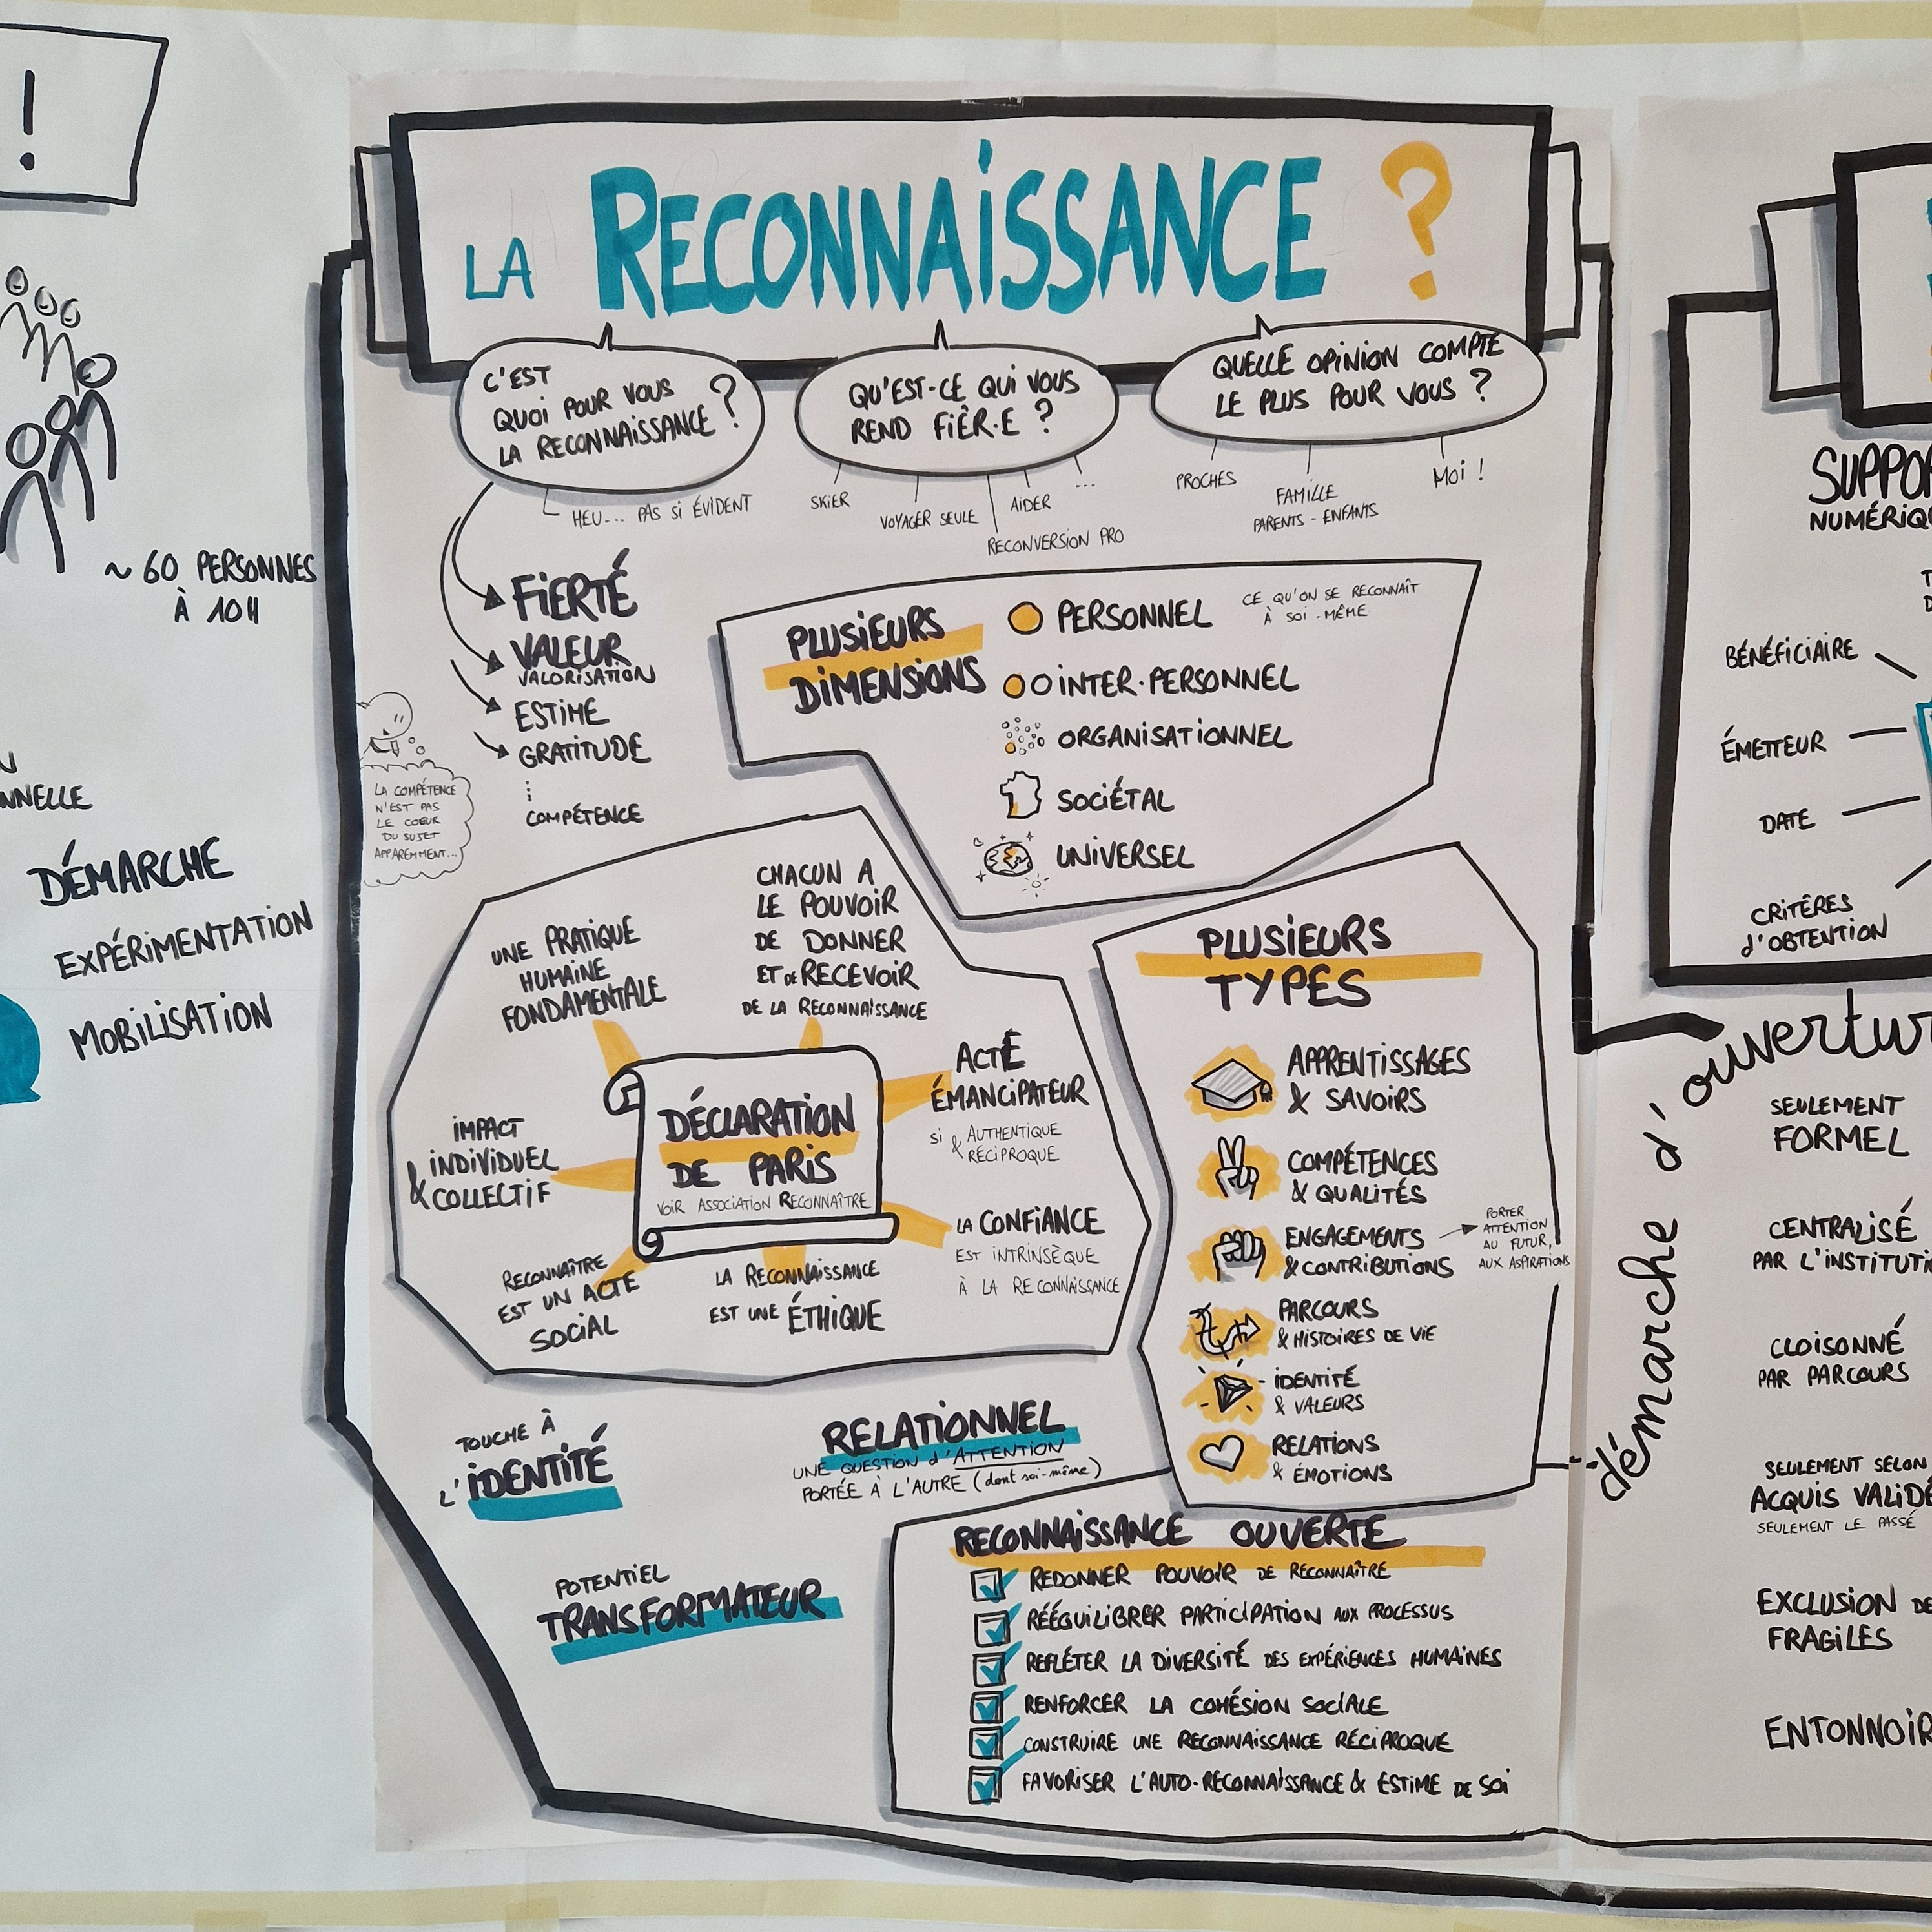 !
~ 60 PERSONNES
À 10H
NNELLE
DÉMARCHE
EXPÉRIMENTATION
MOBILISATION
LA RECONNAISSANCE ?
C'EST
QUOI POUR VOUS
LA RECONNAISSANCE ?
HEU... PAS SI ÉVIDENT
QU'EST-CE QUI VOUS
REND FIÈR·E ?
SKIER
VOYAGER SEULE
RECONVERSION PRO
AIDER
...
QUELLE OPINION COMPTE
LE PLUS POUR VOUS ?
PROCHES
FAMILLE
PARENTS - ENFANTS
MOI !
FIERTÉ
VALEUR
VALORISATION
ESTIME
GRATITUDE
COMPÉTENCE
LA COMPÉTENCE
N'EST PAS
LE COEUR
DU SUJET
APPAREMMENT...
PLUSIEURS
DIMENSIONS
PERSONNEL
CE QU'ON SE RECONNAÎT
À SOI-MÊME
INTER-PERSONNEL
ORGANISATIONNEL
SOCIÉTAL
UNIVERSEL
UNE PRATIQUE
HUMAINE
FONDAMENTALE
CHACUN A
LE POUVOIR
DE DONNER
ET DE RECEVOIR
DE LA RECONNAISSANCE
ACTE
ÉMANCIPATEUR
SI AUTHENTIQUE
& RÉCIPROQUE
IMPACT
INDIVIDUEL
& COLLECTIF
DÉCLARATION
DE PARIS
VOIR ASSOCIATION RECONNAÎTRE
LA CONFIANCE
EST INTRINSÈQUE
À LA RECONNAISSANCE
RECONNAÎTRE
EST UN ACTE
SOCIAL
LA RECONNAISSANCE
EST UNE ÉTHIQUE
PLUSIEURS
TYPES
APPRENTISSAGES
& SAVOIRS
COMPÉTENCES
& QUALITÉS
ENGAGEMENTS
& CONTRIBUTIONS
PORTER
ATTENTION
AU FUTUR,
AUX ASPIRATIONS
PARCOURS
& HISTOIRES DE VIE
IDENTITÉ
& VALEURS
RELATIONS
& ÉMOTIONS
TOUCHE À
L'IDENTITÉ
RELATIONNEL
UNE QUESTION d'ATTENTION
PORTÉE À L'AUTRE (dont soi-même)
POTENTIEL
TRANSFORMATEUR
RECONNAISSANCE OUVERTE
REDONNER POUVOIR DE RECONNAÎTRE
RÉÉQUILIBRER PARTICIPATION AUX PROCESSUS
REFLÉTER LA DIVERSITÉ DES EXPÉRIENCES HUMAINES
RENFORCER LA COHÉSION SOCIALE
CONSTRUIRE UNE RECONNAISSANCE RÉCIPROQUE
FAVORISER L'AUTO-RECONNAISSANCE & ESTIME DE SOI
SUPPO
NUMÉRIQU
BÉNÉFICIAIRE
ÉMETTEUR
DATE
CRITÈRES
d'OBTENTION
démarche d'ouvertur
SEULEMENT
FORMEL
CENTRALISÉ
PAR L'INSTITUTI
CLOISONNÉ
PAR PARCOURS
SEULEMENT SELON
ACQUIS VALIDÉ
SEULEMENT LE PASSÉ
EXCLUSION DE
FRAGILES
ENTONNOIR